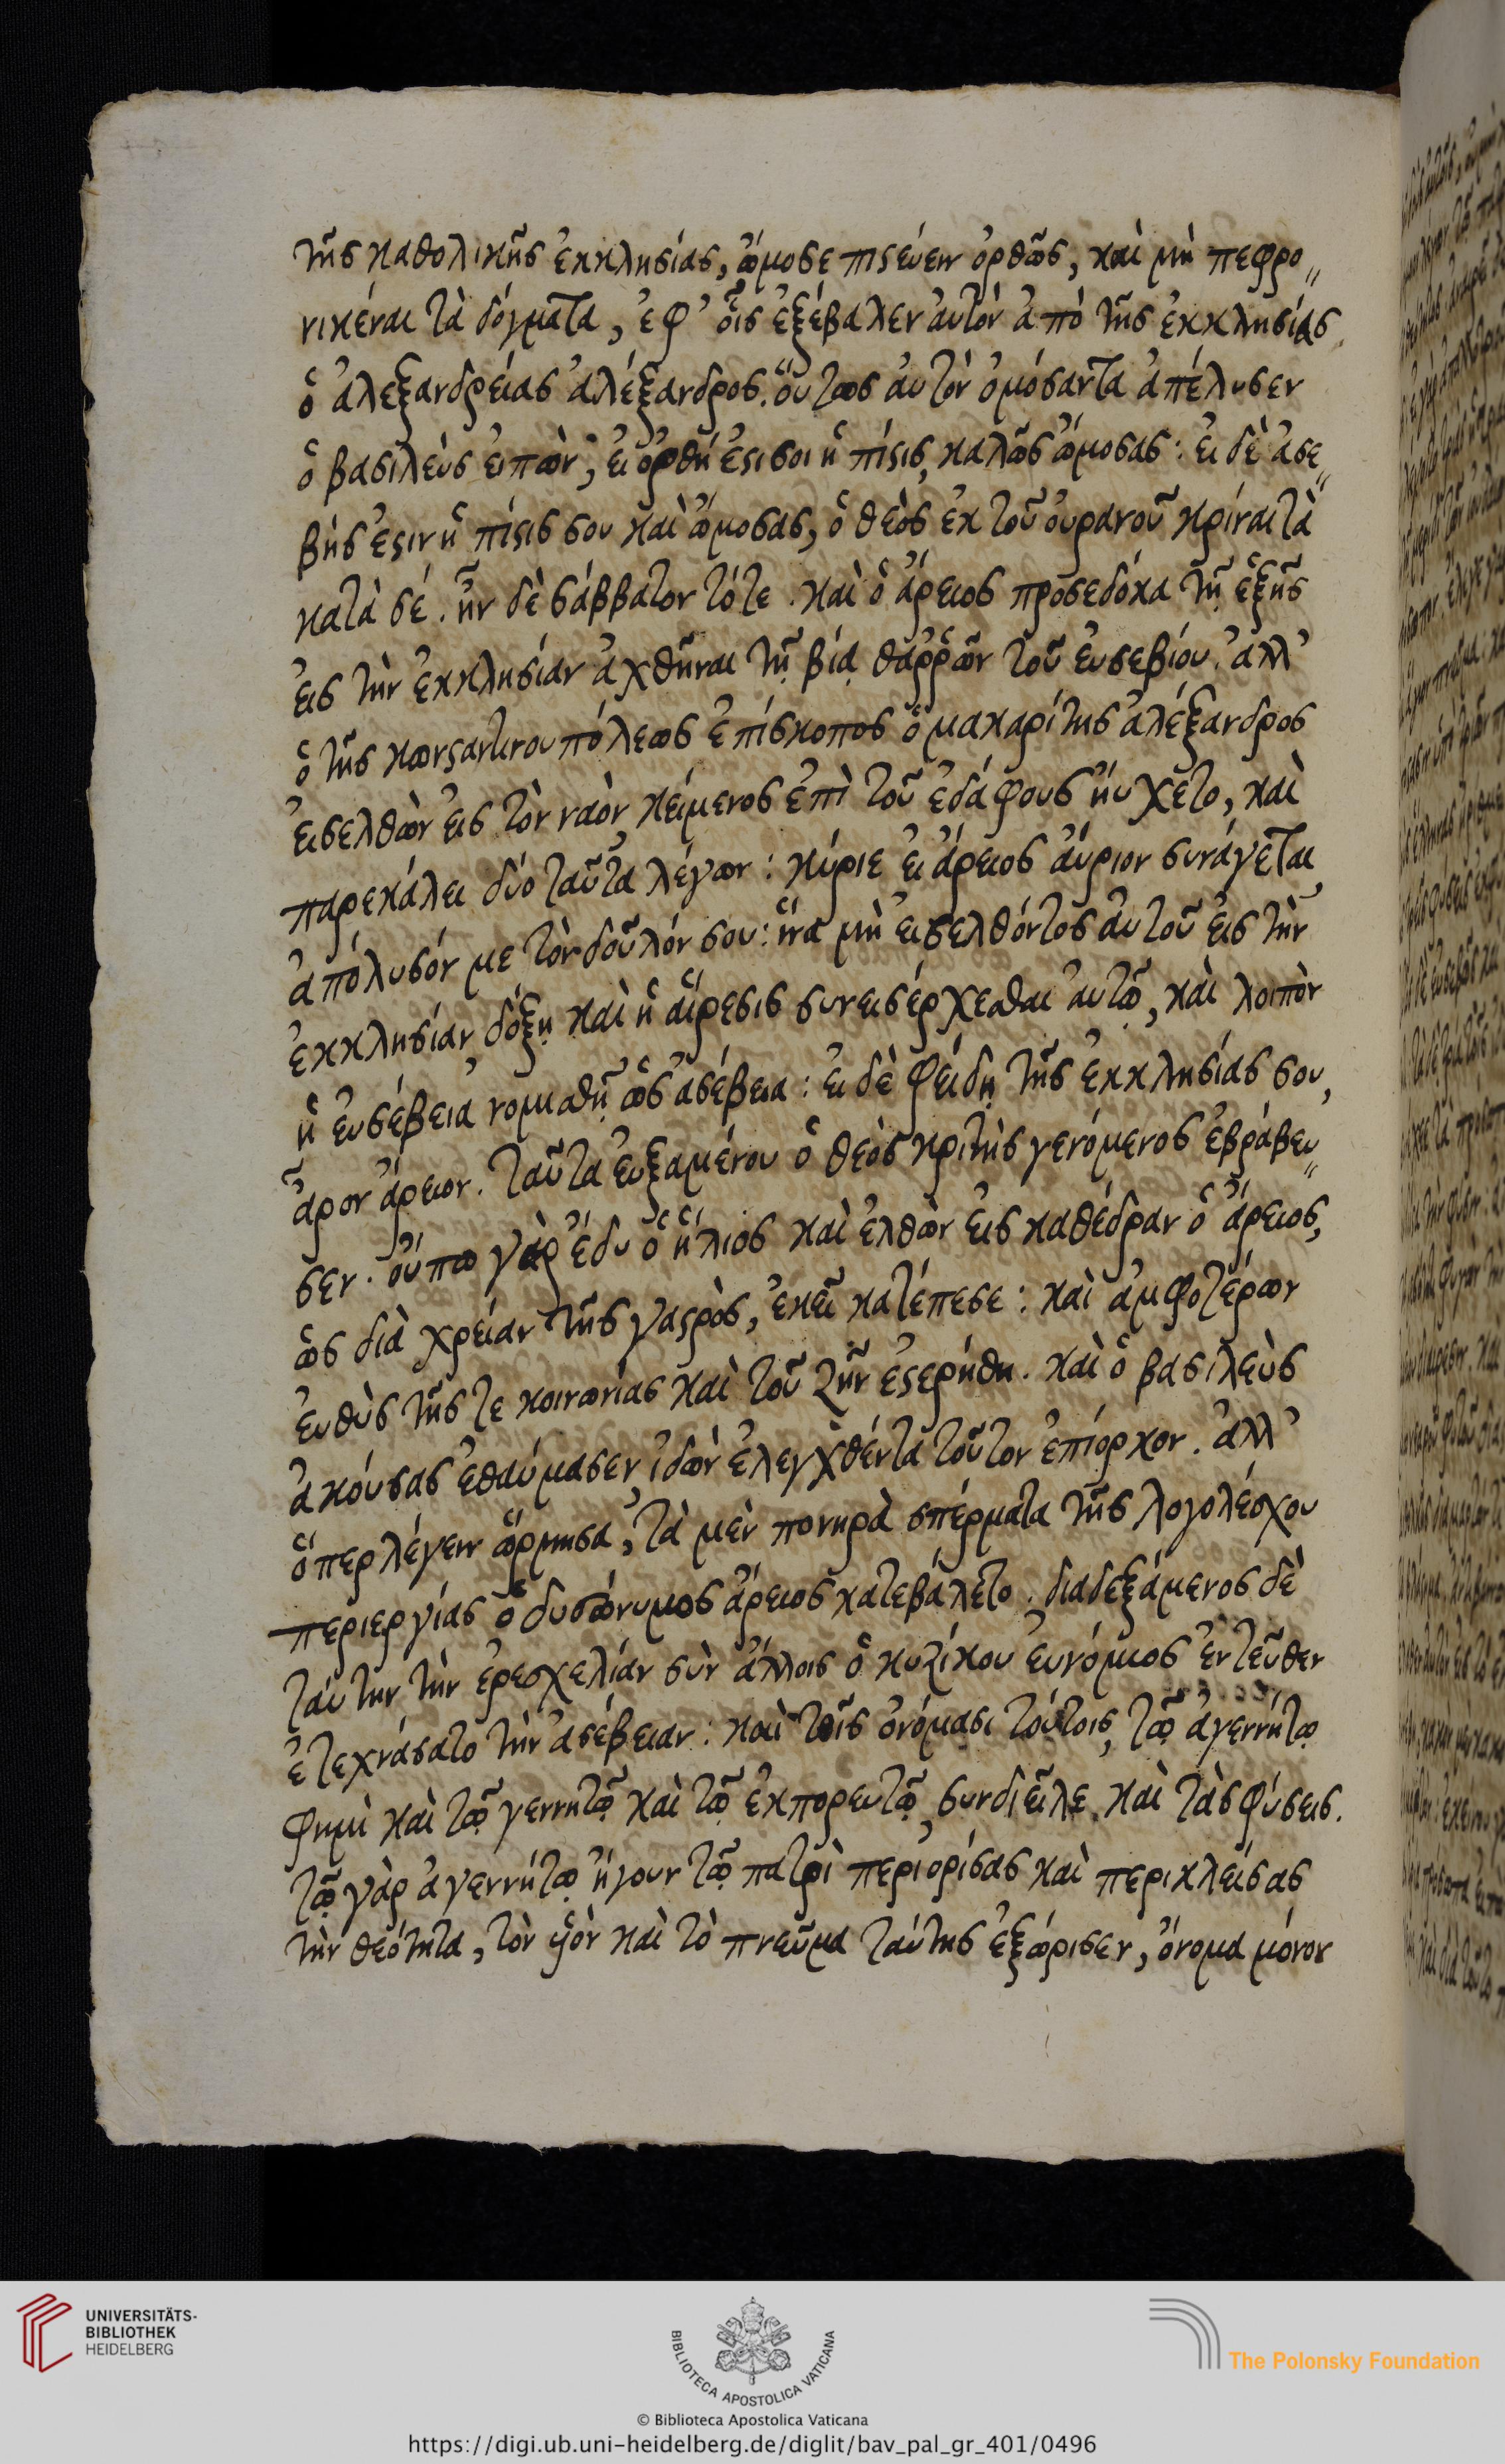 τῆς καθολικῆς ἐκκλησίας, ὤμοσε πιστεύειν ὀρθῶς, καὶ μὴ πεφρο„
νικέναι τὰ δόγματα, ἐφ᾽ οἷς ἐξέβαλεν αὐτὸν ἀπὸ τῆς ἐκκλησίας
ὁ ἀλεξανδρείας ἀλέξανδρος. οὕτως αὐτὸν ὀμόσαντα ἀπέλυσεν
ὁ βασιλεὺς εἰπὼν, εἰ ὀρθή ἐστί σοι ἡ πίστις, καλῶς ὤμοσας: εἰ δὲ ἀσε„
βής ἐστιν ἡ πίστις σου καὶ ὤμοσας, ὁ θεὸς ἐκ τοῦ οὐρανοῦ κρίναι τὰ
κατὰ σέ. ἦν δὲ σάββατον τότε. καὶ ὁ ἄρειος προσεδόκα τῇ ἑξῆς
εἰς τὴν ἐκκλησίαν ἀχθῆναι τῇ βίᾳ θαῤῥῶν τοῦ εὐσεβίου. ἀλλ᾽
ὁ τῆς κωνσταντινουπόλεως ἐπίσκοπος ὁ μακαρίτης ἀλέξανδρος
εἰσελθὼν εἰς τὸν ναὸν, κείμενος ἐπὶ τοῦ ἐδάφους ηὔχετο, καὶ
παρεκάλει δύο ταῦτα λέγων: κύριε εἰ ἄρειος αὔριον συνάγεται,
ἀπόλυσόν με τὸν δοῦλόν σου: ἵνα μὴ εἰσελθόντος αὐτοῦ εἰς τὴν
ἐκκλησίαν, δόξῃ καὶ ἡ αἵρεσις συνεισέρχεσθαι αὐτῷ, καὶ λοιπὸν
ἡ εὐσέβεια νομισθῇ ὡς ἀσέβεια: εἰ δὲ φείδῃ τῆς ἐκκλησίας σου,
ἆρον ἄρειον. ταῦτα εὐξαμένου ὁ θεὸς κριτὴς γενόμενος ἐβράβευ„
σεν. οὔπω γὰρ ἔδυ ὁ ἥλιος καὶ ἐλθὼν εἰς καθέδραν ὁ ἄρειος,
ὡς διὰ χρείαν τῆς γαστρὸς, ἐκεῖ κατέπεσε: καὶ ἀμφοτέρων
εὐθὺς τῆς τε κοινωνίας καὶ τοῦ ζῆν ἐστερήθη. καὶ ὁ βασιλεὺς
ἀκούσας ἐθαύμασεν, ἰδὼν ἐλεγχθέντα τοῦτον ἐπίορκον. ἀλλ᾽
ὅπερ λέγειν ὥρμησα, τὰ μὲν πονηρὰ σπέρματα τῆς λογολέσχου
περιεργίας ὁ δυσώνυμος ἄρειος κατεβάλετο. διαδεξάμενος δὲ
ταύτην τὴν ἐρεσχελίαν σὺν ἄλλοις ὁ κυζίκου εὐνόμιος ἐντεῦθεν
ἐτεχνάσατο τὴν ἀσέβειαν: καὶ τοῖς ὀνόμασι τούτοις, τῷ ἀγεννήτῳ
φημὶ καὶ τῷ γεννητῷ καὶ τῷ ἐκπορευτῷ, συνδιεῖλε καὶ τὰς φύσεις.
τῷ γὰρ ἀγεννήτῳ ἤγουν τῷ πατρὶ περιορίσας καὶ περικλείσας
τὴν θεότητα, τὸν υἱὸν καὶ τὸ πνεῦμα ταύτης ἐξώρισεν, ὄνομα μόνον
UNIVERSITÄTS-
BIBLIOTHEK
HEIDELBERG
BIBLIOTECA APOSTOLICA VATICANA
The Polonsky Foundation
© Biblioteca Apostolica Vaticana
https://digi.ub.uni-heidelberg.de/diglit/bav_pal_gr_401/0496